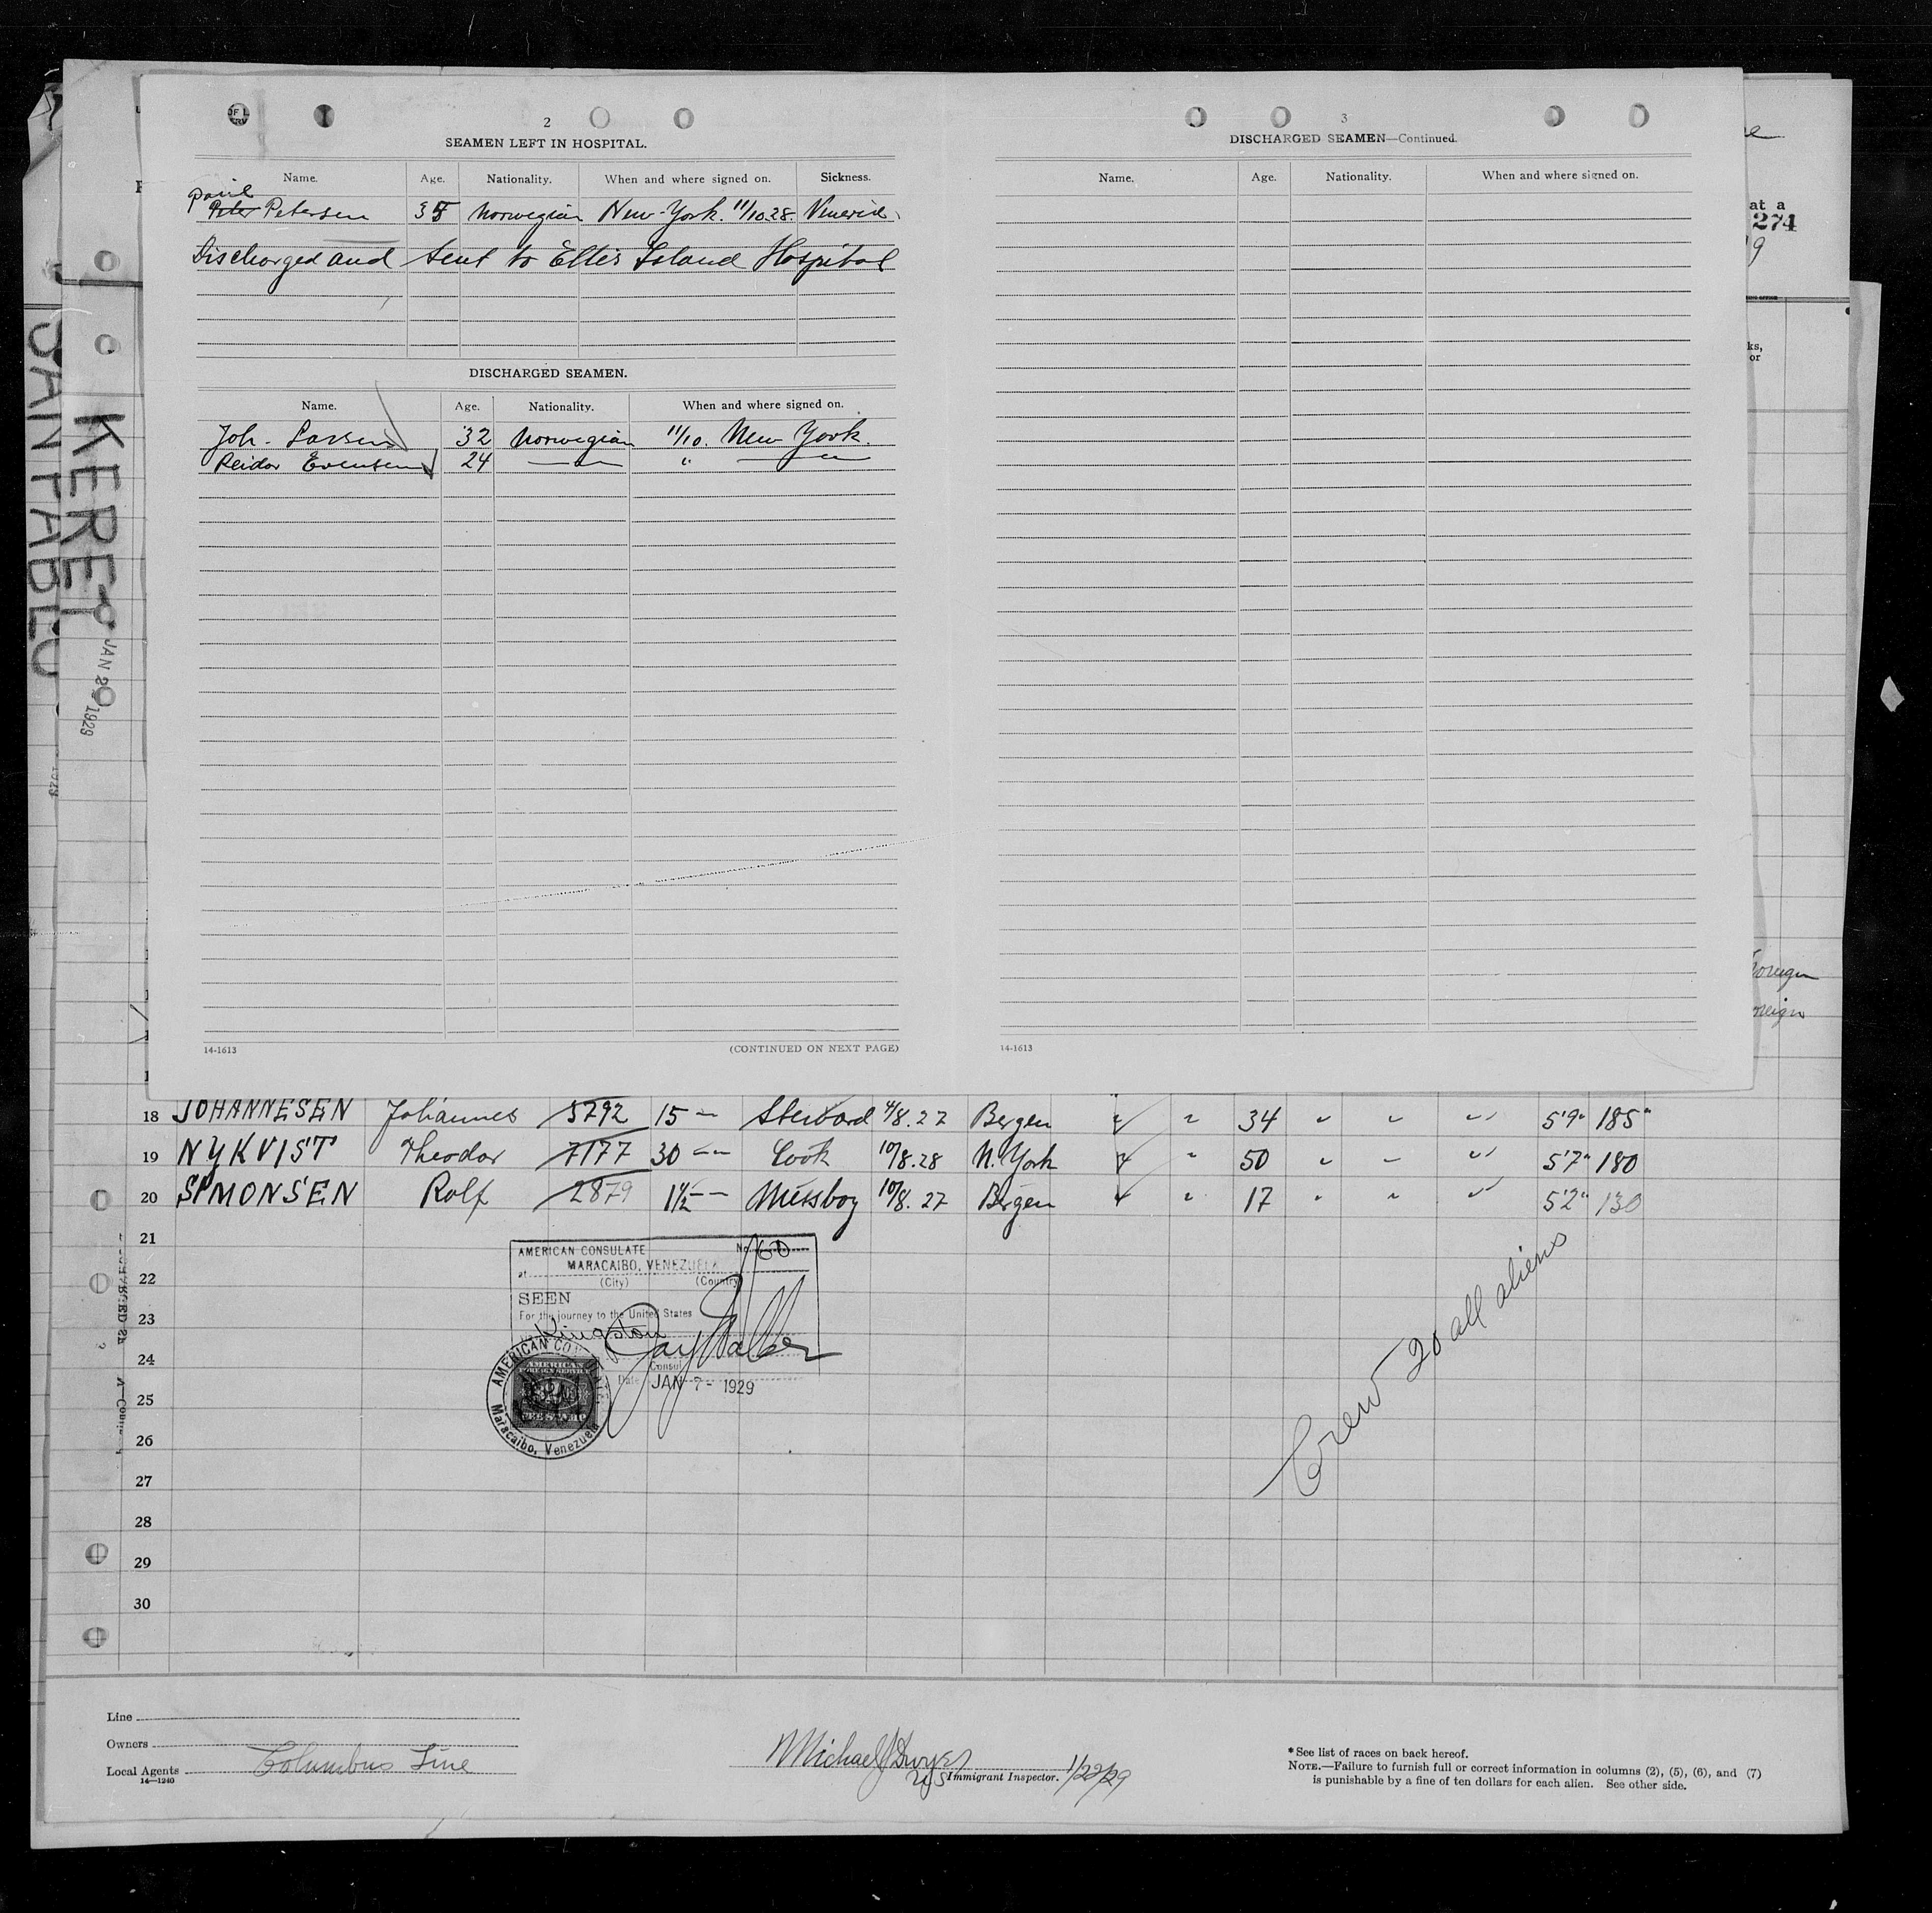 2
SEAMEN LEFT IN HOSPITAL.
Name. Age. Nationality. When and where signed on. Sickness.
Paul
Peter Petersen 35 Norwegian New-York. 11/10.28. Veneric
Discharged and sent to Ellis Island Hospital
DISCHARGED SEAMEN.
Name. Age. Nationality. When and where signed on.
Joh. Larsen 32 Norwegian 11/10. New York.
Reidar Evensen 24 —"— " —"—
14-1613 (CONTINUED ON NEXT PAGE)
3
DISCHARGED SEAMEN—Continued.
Name. Age. Nationality. When and where signed on.
14-1613
at a
274
9
ks,
or
foreign
oreign
KEREL
JAN 2 1929
18 JOHANNESEN Johannes 5792 15 — Steward 4/8.27 Bergen " " 34 " " " 5'9" 185"
19 NYKVIST Theodor 7177 30 — Cook 10/8.28 N. York " " 50 " " " 5'7" 180
20 SIMONSEN Rolf 2879 1½ — Messboy 10/8.27 Bergen " " 17 " " " 5'2" 130
21
22
23
24
25
26
27
28
29
30
AMERICAN CONSULATE No. 160
at MARACAIBO, VENEZUELA
(City) (Country)
SEEN
For the journey to the United States
Kingston
Consul
Date JAN 7 - 1929
AMERICAN CONSULATE
AMERICAN
FOREIGN SERVICE
FEE STAMP
Maracaibo, Venezuela
Crew 20 all aliens
Line
Owners
Local Agents Columbus Line
14—1240
Michael J Dwyer
US Immigrant Inspector. 1/22/29
*See list of races on back hereof.
NOTE.—Failure to furnish full or correct information in columns (2), (5), (6), and (7)
is punishable by a fine of ten dollars for each alien. See other side.